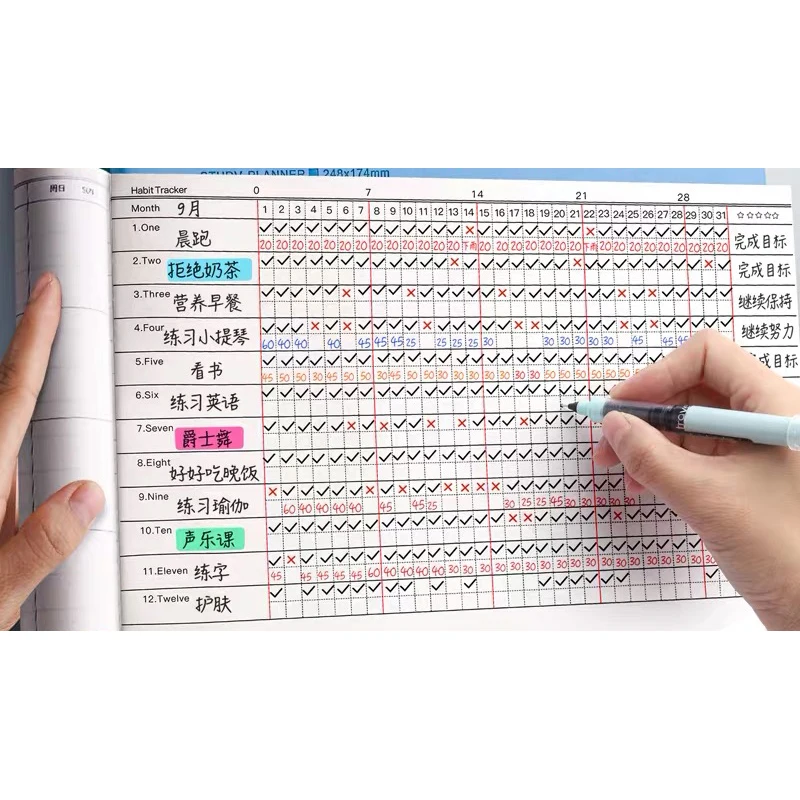 周日
STUDY PLANNER 248x174mm
Habit Tracker 0 7 14 21 28
Month 9月 1 2 3 4 5 6 7 8 9 10 11 12 13 14 15 16 17 18 19 20 21 22 23 24 25 26 27 28 29 30 31 ☆☆☆☆☆
1.One 晨跑 ✓ ✓ ✓ ✓ ✓ ✓ ✓ ✓ ✓ ✓ ✓ ✓ ✓ × ✓ ✓ ✓ ✓ ✓ ✓ ✓ × ✓ ✓ ✓ ✓ ✓ ✓ ✓ ✓ ✓ 完成目标
20 20 20 20 20 20 20 20 20 20 20 20 20 下雨 20 20 20 20 20 20 20 下雨 20 20 20 20 20 20 20 20 20
2.Two 拒绝奶茶 完成目标
3.Three 营养早餐 继续保持
4.Four 练习小提琴 继续努力
60 40 40 40 45 45 45 25 25 25 25 30 30 30 30 30 30 45 45 45
5.Five 看书 完成目标
45 50 50 30 45 50 50 30 45 50 50 30 30 30 50 50 30 30 30 50 50 50 50 50
6.Six 练习英语
7.Seven 爵士舞
8.Eight 好好吃晚饭
9.Nine 练习瑜伽
60 40 40 40 40 45 45 25 30 25 25 45 30 30 30 30 30
10.Ten 声乐课
11.Eleven 练字
45 45 45 45 45 60 40 40 40 40 30 30 30 30 30 30 30 30 30 30 30 30 30 30 30 30 30 30
12.Twelve 护肤